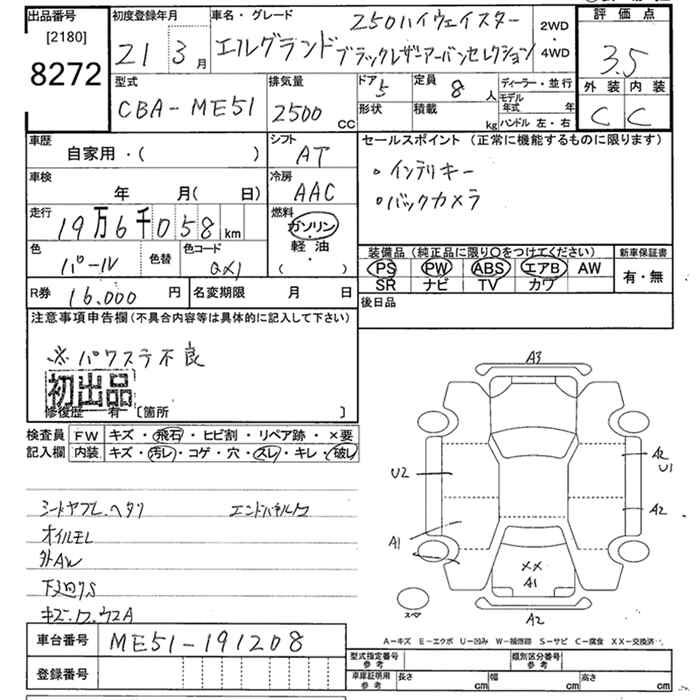 出品番号
[2180]
8272
初度登録年月
21 3月
車名・グレード
250ハイウェイスター
エルグランドブラックレザーアーバンセレクション
2WD
・
4WD
評価点
3.5
外装 内装
C C
型式
CBA-ME51
排気量
2500 cc
ドア 5
定員 8 人
形状
積載 kg
ディーラー・並行
モデル年式 年
ハンドル 左・右
車歴
自家用・( )
シフト
AT
セールスポイント (正常に機能するものに限ります)
・インテリキー
・バックカメラ
車検
年 月( 日)
冷房
AAC
走行
19万6千058km
燃料
ガソリン
・
軽油
( ・ )
色
パール
色替
色コード
QX1
装備品 (純正品に限り○をつけてください)
PS PW ABS エアB AW
SR ナビ TV カワ
新車保証書
有・無
R券 16.000 円
名変期限 月 日
後日品
注意事項申告欄(不具合内容等は具体的に記入して下さい)
※パワステ不良
初出品
修復歴 有 [箇所 ]
検査員
記入欄
FW キズ・飛石・ヒビ割・リペア跡・×要
内装 キズ・汚レ・コゲ・穴・スレ・キレ・破レ
シートヤブレ.ヘタリ
エンドパネルワ
オイルモレ
外AW
下廻りS
キズ.ワ.ウスA
A3
U2
A2
U1
A2
A1
XX
A1
スペア
A2
A-キズ E-エクボ U-凹み W-補修跡 S-サビ C-腐食 XX-交換済
車台番号 ME51-191208
登録番号
型式指定番号
参考
類別区分番号
参考
車庫証明用
参考
長さ cm
幅 cm
高さ cm